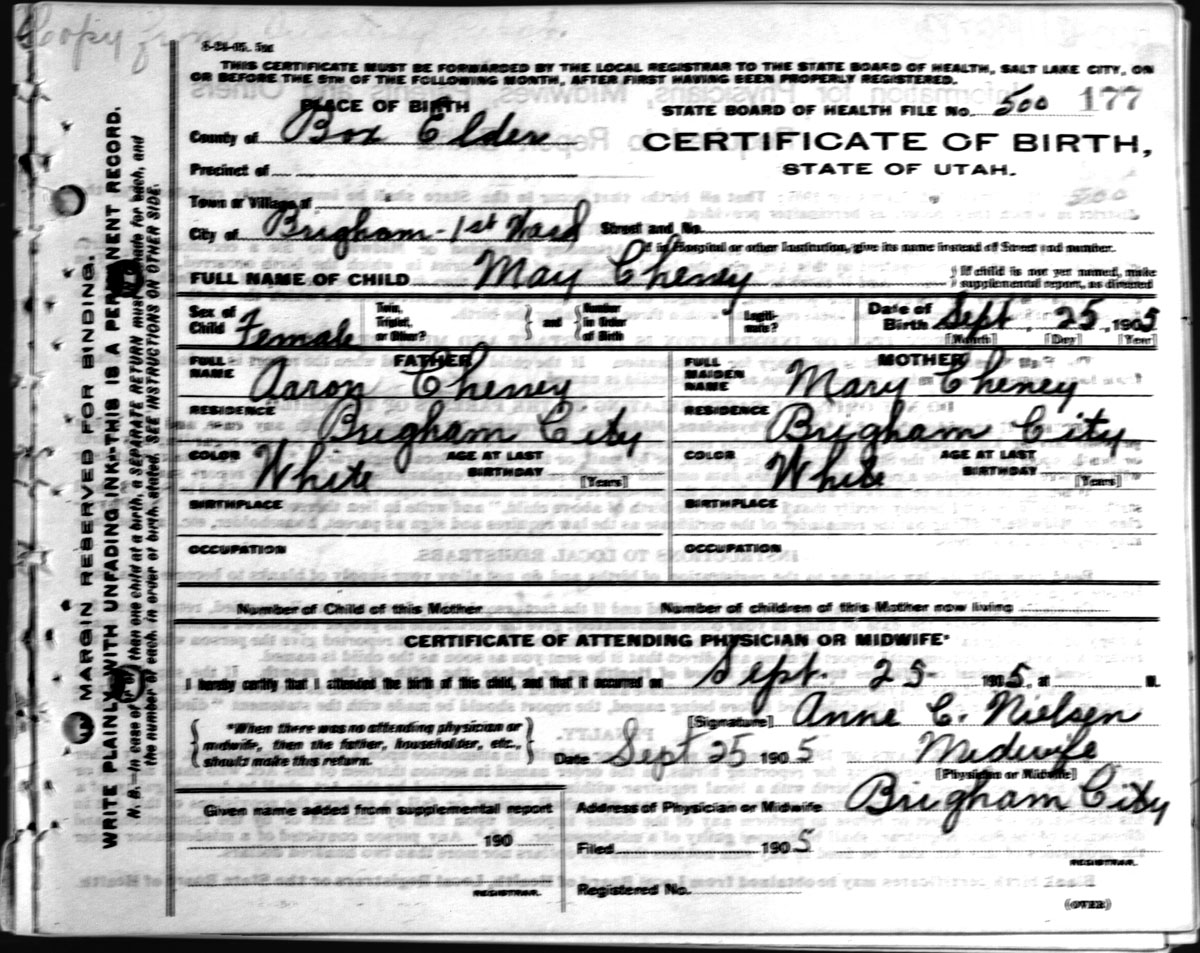 Copy from
8-24-05. 5m
THIS CERTIFICATE MUST BE FORWARDED BY THE LOCAL REGISTRAR TO THE STATE BOARD OF HEALTH, SALT LAKE CITY, ON
OR BEFORE THE 5TH OF THE FOLLOWING MONTH, AFTER FIRST HAVING BEEN PROPERLY REGISTERED.
PLACE OF BIRTH
STATE BOARD OF HEALTH FILE No. 500 177
County of Box Elder
CERTIFICATE OF BIRTH,
STATE OF UTAH.
Precinct of
500
Town or Village of
City of Brigham - 1st Ward Street and No.
If in Hospital or other Institution, give its name instead of Street and number.
FULL NAME OF CHILD May Cheney
} If child is not yet named, make
supplemental report, as directed
Sex of Child Female
Twin, Triplet, or Other?
{ and } Number in Order of Birth
Legitimate?
Date of Birth Sept 25, 1905
[Month] [Day] [Year]
FATHER
FULL NAME Aaron Cheney
RESIDENCE Brigham City
COLOR White AGE AT LAST BIRTHDAY [Years]
BIRTHPLACE
OCCUPATION
MOTHER
FULL MAIDEN NAME Mary Cheney
RESIDENCE Brigham City
COLOR White AGE AT LAST BIRTHDAY [Years]
BIRTHPLACE
OCCUPATION
Number of Child of this Mother
Number of children of this Mother now living
CERTIFICATE OF ATTENDING PHYSICIAN OR MIDWIFE*
I hereby certify that I attended the birth of this child, and that it occurred on Sept. 25 1905, at M.
{ *When there was no attending physician or
midwife, then the father, householder, etc.,
should make this return. }
[Signature] Anne C. Nielsen
Date Sept 25 1905 Midwife
[Physician or Midwife]
Given name added from supplemental report
190
REGISTRAR.
Address of Physician or Midwife Brigham City
Filed 1905
REGISTRAR.
Registered No.
(OVER)
MARGIN RESERVED FOR BINDING.
WRITE PLAINLY WITH UNFADING INK—THIS IS A PERMANENT RECORD.
N. B.—In case of more than one child at a birth, a SEPARATE RETURN must be made for each, and
the number of each, in order of birth, stated. SEE INSTRUCTIONS ON OTHER SIDE.